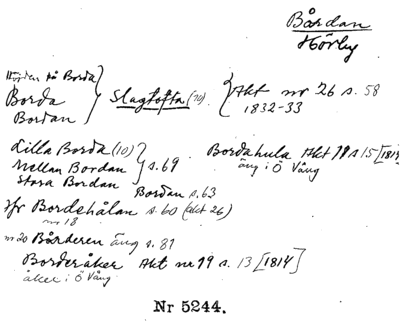 Bårdan
Hörby
Höjden på Borda
Borda
Bordan
Slagtofta (70)
Akt nr 26 s. 58
1832-33
Lilla Borda (10)
Mellan Bordan
Stora Bordan
s. 69
Bordahula Akt 19 s 15 [1814]
äng i Ö Vång
Bordan s. 63
jfr Bordshålan s. 60 (akt 26)
nr 18
nr 20 Bårderen äng s. 81
Borderåker Akt nr 19 s. 13 [1814]
åker i Ö Vång
Nr 5244.